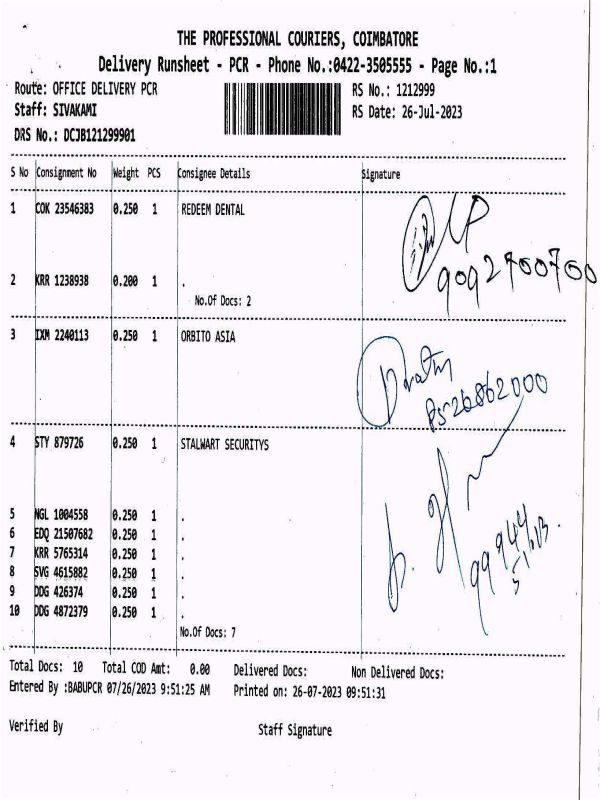 THE PROFESSIONAL COURIERS, COIMBATORE
Delivery Runsheet - PCR - Phone No.:0422-3505555 - Page No.:1
Route: OFFICE DELIVERY PCR RS No.: 1212999
Staff: SIVAKAMI RS Date: 26-Jul-2023
DRS No.: DCJB121299901
S No Consignment No Weight PCS Consignee Details Signature
1 COK 23546383 0.250 1 REDEEM DENTAL
9092700700
2 KRR 1238938 0.200 1 .
No.Of Docs: 2
3 IXM 2240113 0.250 1 ORBITO ASIA
4 STY 879726 0.250 1 STALWART SECURITYS
5 NGL 1004558 0.250 1 .
6 EDQ 21507682 0.250 1 .
7 KRR 5765314 0.250 1 .
8 SVG 4615882 0.250 1 .
9 DDG 426374 0.250 1 .
10 DDG 4872379 0.250 1 .
No.Of Docs: 7
Total Docs: 10 Total COD Amt: 0.00 Delivered Docs: Non Delivered Docs:
Entered By :BABUPCR 07/26/2023 9:51:25 AM Printed on: 26-07-2023 09:51:31
Verified By Staff Signature